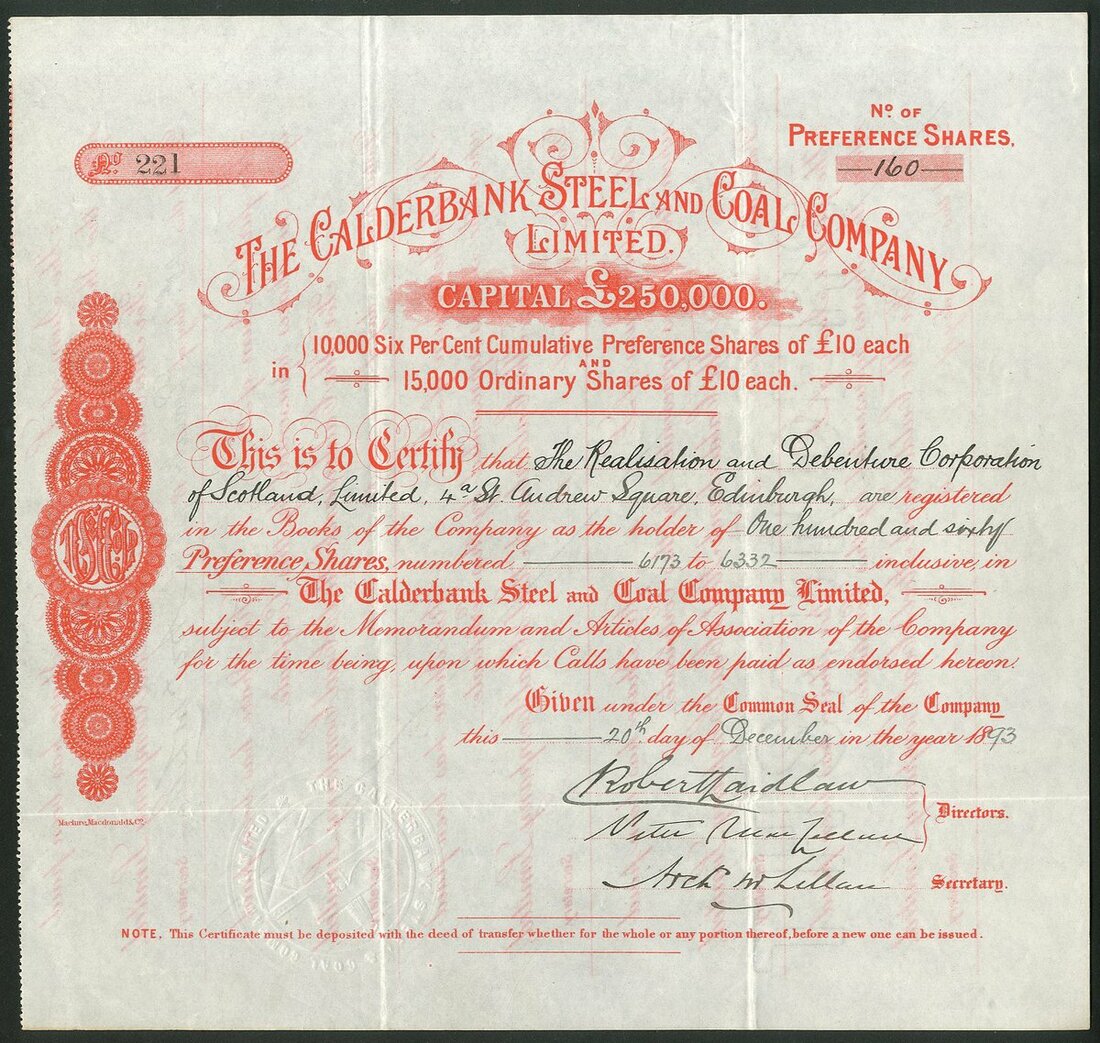 No. OF
PREFERENCE SHARES.
No. 221
160
THE CALDERBANK STEEL AND COAL COMPANY
LIMITED.
CAPITAL £250,000.
in { 10,000 Six Per Cent Cumulative Preference Shares of £10 each
AND
15,000 Ordinary Shares of £10 each.
This is to Certify that The Realisation and Debenture Corporation
of Scotland, Limited, 4a St. Andrew Square, Edinburgh, are registered
in the Books of the Company as the holder of One hundred and sixty
Preference Shares, numbered 6173 to 6332 inclusive, in
The Calderbank Steel and Coal Company Limited,
subject to the Memorandum and Articles of Association of the Company
for the time being, upon which Calls have been paid as endorsed hereon.
Given under the Common Seal of the Company
this 20th day of December in the year 1893
Robert Laidlaw
Directors.
Peter
Arch McLellan Secretary.
Maclure, Macdonald & Co.
THE CALDERBANK STEEL
COAL COMPANY LIMITED
NOTE. This Certificate must be deposited with the deed of transfer whether for the whole or any portion thereof, before a new one can be issued.